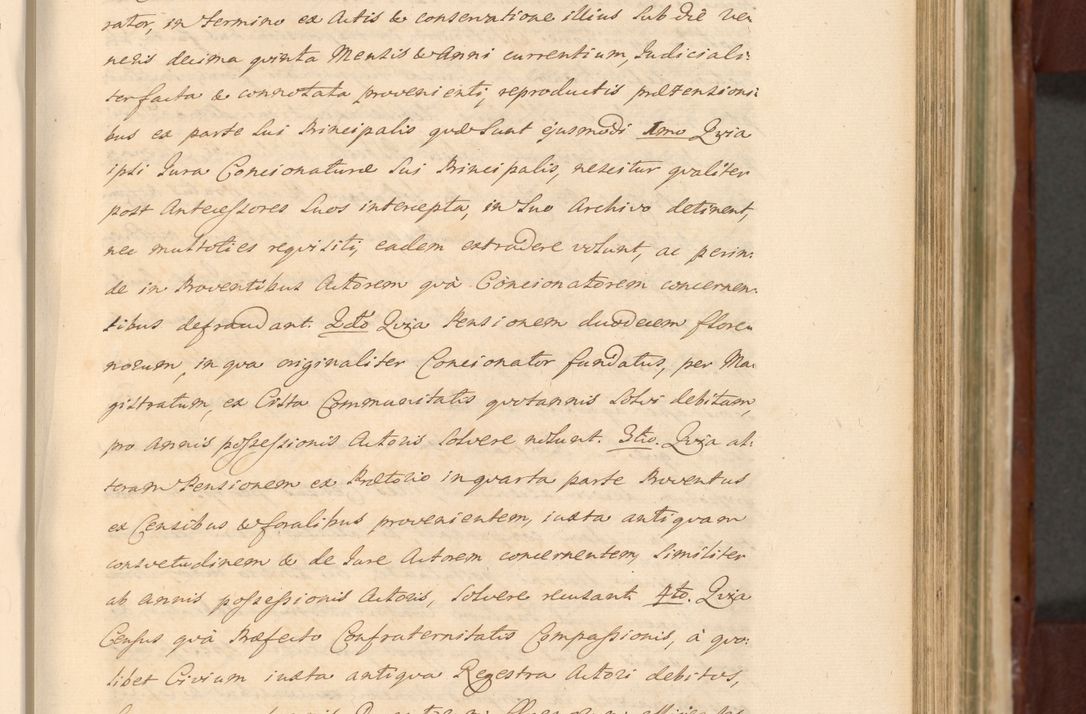 rator, in termino ex Actis & conservatione illius sub die ve-
neris decima quinta Mensis & Anni currentium, Judiciali-
ter facta & connotata provenienti, reproductis prætensioni-
bus ex parte sui Principalis quæ sunt ejusmodi 1mo Quia
ipsi Jura Concionaturæ sui Principalis, nescitur qualiter
post Antecessores suos intercepta, in suo Archivo detinent,
nec multoties requisiti, eadem extradere volunt, ac perin-
de in Proventibus Actorem quà Concionatorem concernen-
tibus defraudant. 2do Quia Pensionem duodecem flore-
norum, in qva originaliter Concionator fundatus, per Ma-
gistratum, ex Cista Communitatis quotannis solvi debitam,
pro annis possessionis Actoris solvere nolunt. 3tio. Quia al-
teram Pensionem ex Prætorio in quarta parte Proventus
ex Censibus & foralibus provenientem, iuxta antiquam
consvetudinem & de Jure Actorem concernentem, similiter
ab annis possessionis Actoris, solvere recusant 4to. Quia
Census quà Præfecto Confraternitatis Compassionis, à quo-
libet Civium iuxta antiqua Regestra Actori debitos,